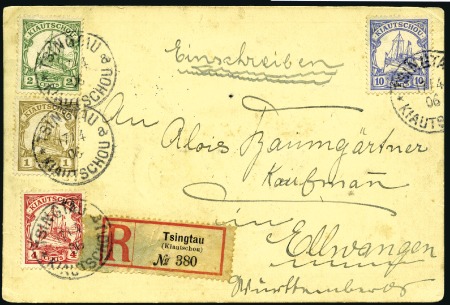 KIAUTSCHOU
2 2
KIAUTSCHOU
10 10
TSINGTAU a
* KIAUTSCHOU *
4
06
Einschreiben
KIAUTSCHOU
1 1
TSINGTAU
4
06
KIAUTSCHOU
An
Alois Baumgärtner
Kaufman
KIAUTSCHOU
4 4
R
Tsingtau
(Kiautschou)
№ 380
in
Ellwangen
Württemberg